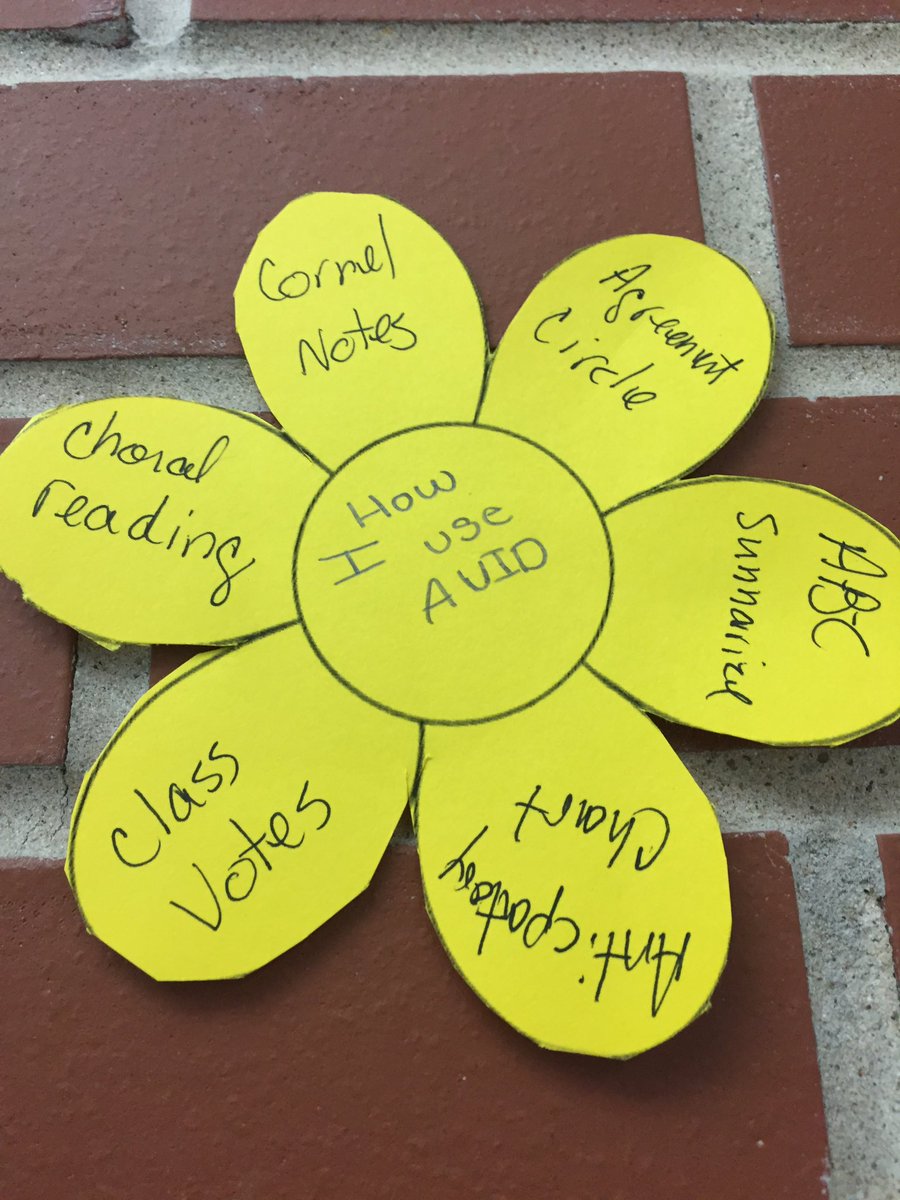 How
I use
AVID
Cornel
Notes
Agreement
Circle
ABC
Summarized
Anticipatory
Chart
Class
Votes
Choral
reading